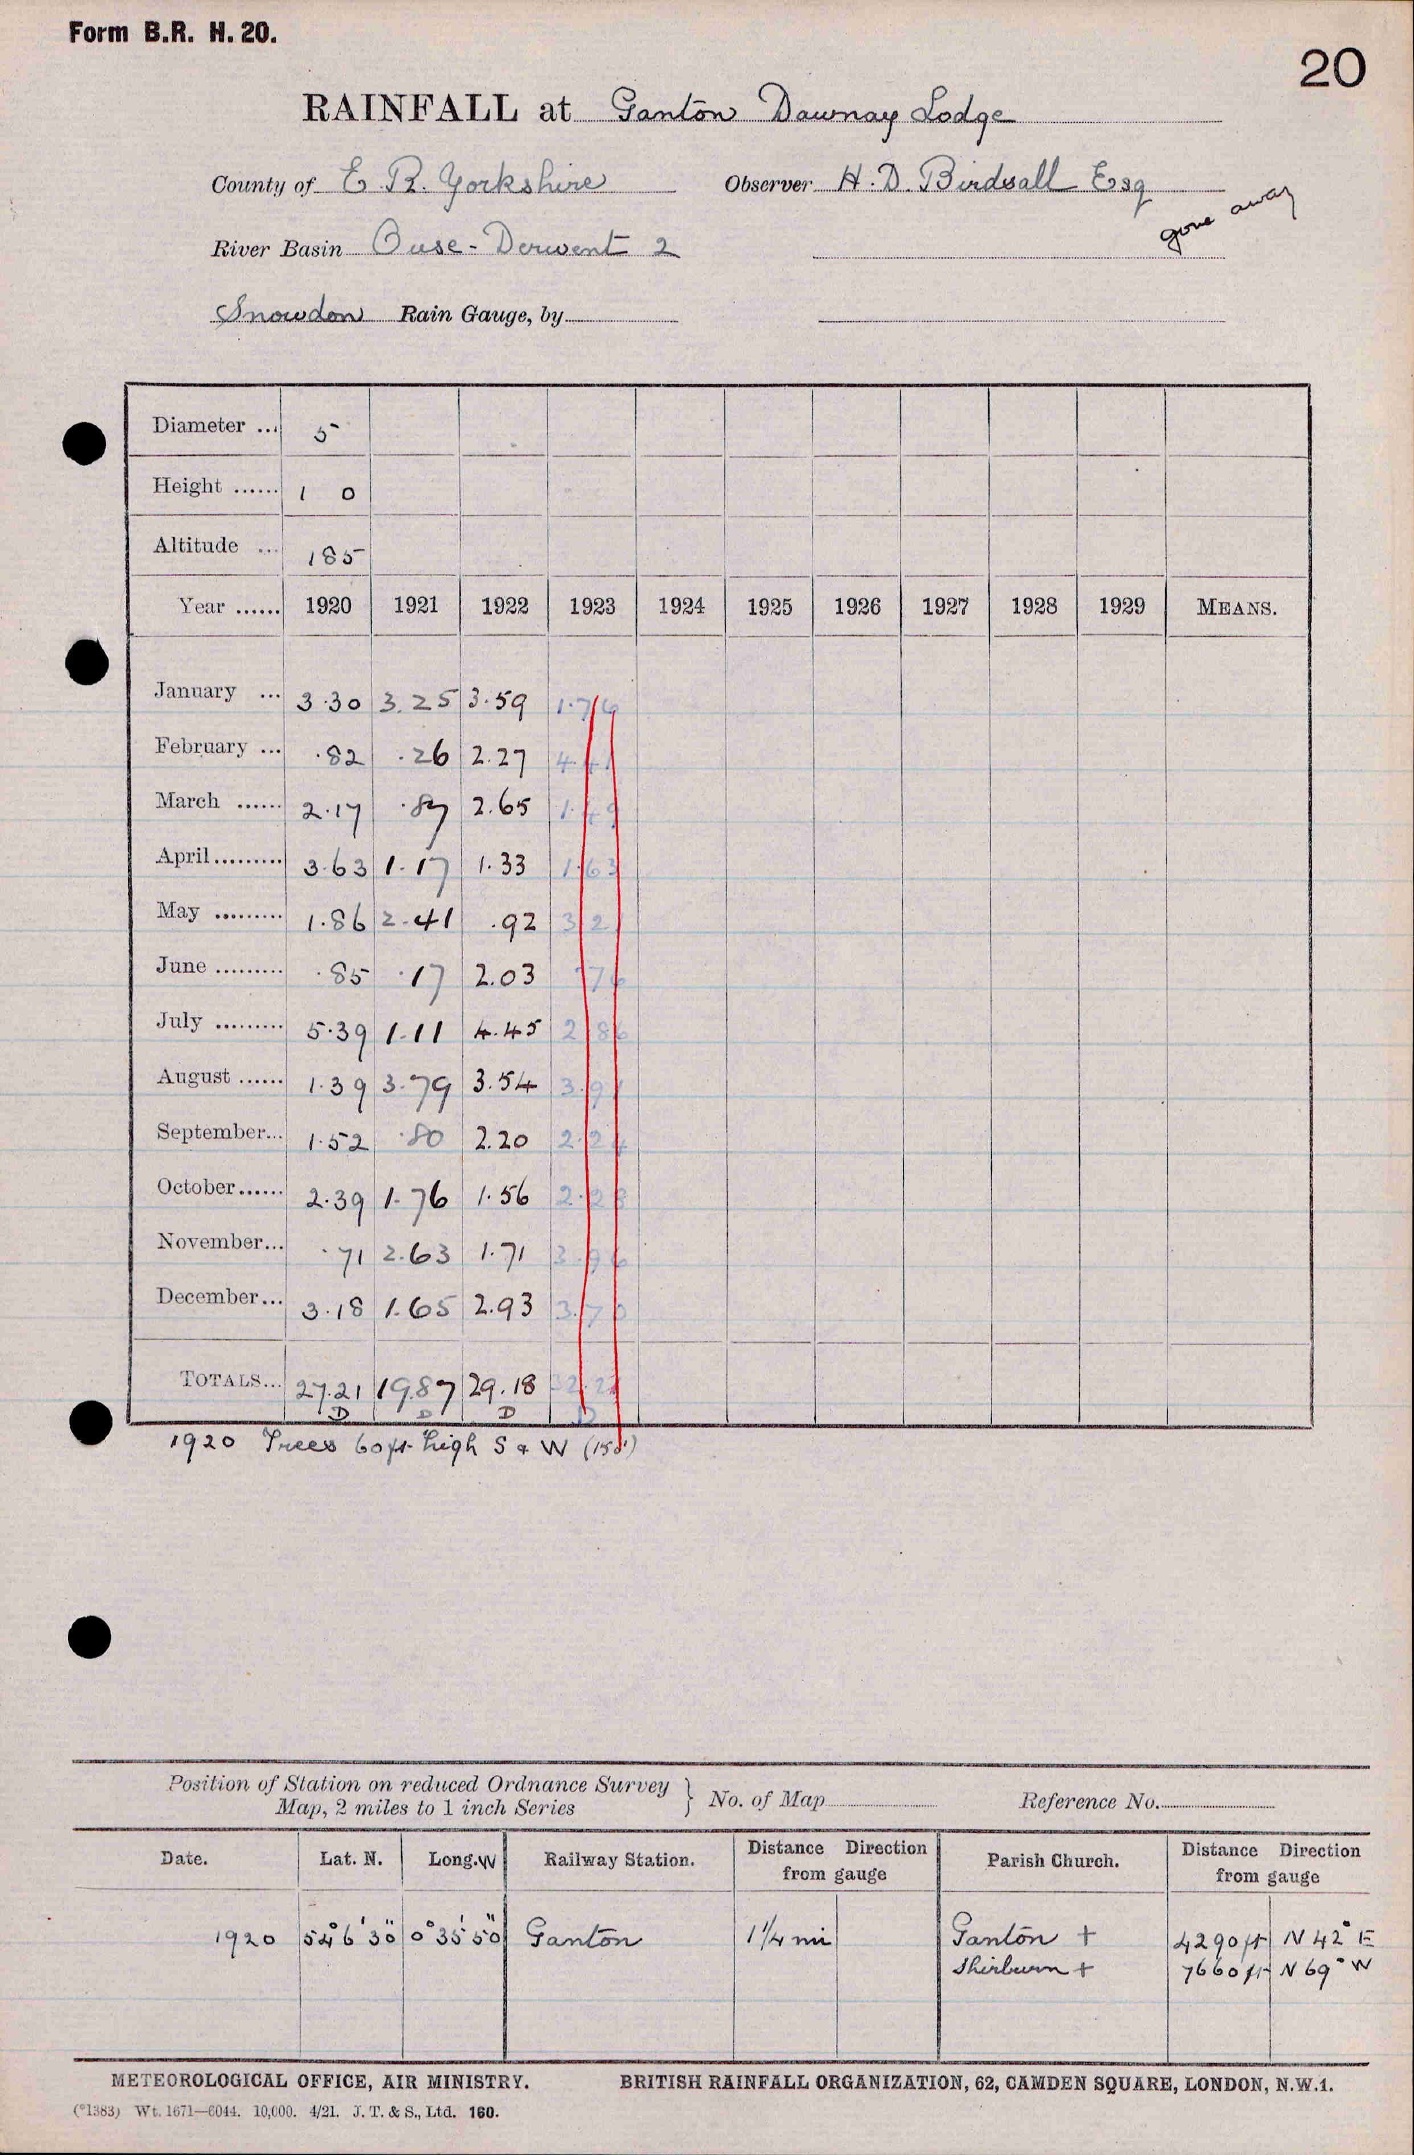 Form B.R. H. 20.
20
RAINFALL at Ganton Dawnay Lodge
County of E. R. Yorkshire Observer H. D. Birdsall Esq
gone away
River Basin Ouse - Derwent 2
Snowdon Rain Gauge, by
Diameter ... 5
Height ...... 1 0
Altitude ... 185
Year ...... 1920 1921 1922 1923 1924 1925 1926 1927 1928 1929 MEANS.
January ... 3.30 3.25 3.59 1.76
February ... .82 .26 2.27 4.41
March ...... 2.17 .87 2.65 1.49
April......... 3.63 1.17 1.33 1.63
May ......... 1.86 2.41 .92 3.21
June ......... .85 .17 2.03 .76
July ......... 5.39 1.11 4.45 2.86
August ...... 1.39 3.79 3.54 3.91
September... 1.52 .80 2.20 2.24
October...... 2.39 1.76 1.56 2.28
November... .71 2.63 1.71 3.96
December... 3.18 1.65 2.93 3.70
TOTALS... 27.21 19.87 29.18 32.21
D D D D
1920 Trees 60ft. high S & W (150')
Position of Station on reduced Ordnance Survey Map, 2 miles to 1 inch Series } No. of Map Reference No.
Date. Lat. N. Long. W Railway Station. Distance Direction from gauge Parish Church. Distance Direction from gauge
1920 54° 6' 30" 0° 35' 50" Ganton 1¼ mi Ganton + 4290 ft N 42° E
Shirburn + 7660 ft N 69° W
METEOROLOGICAL OFFICE, AIR MINISTRY. BRITISH RAINFALL ORGANIZATION, 62, CAMDEN SQUARE, LONDON, N.W.1.
(*1383) Wt. 1671—6044. 10,000. 4/21. J. T. & S., Ltd. 160.